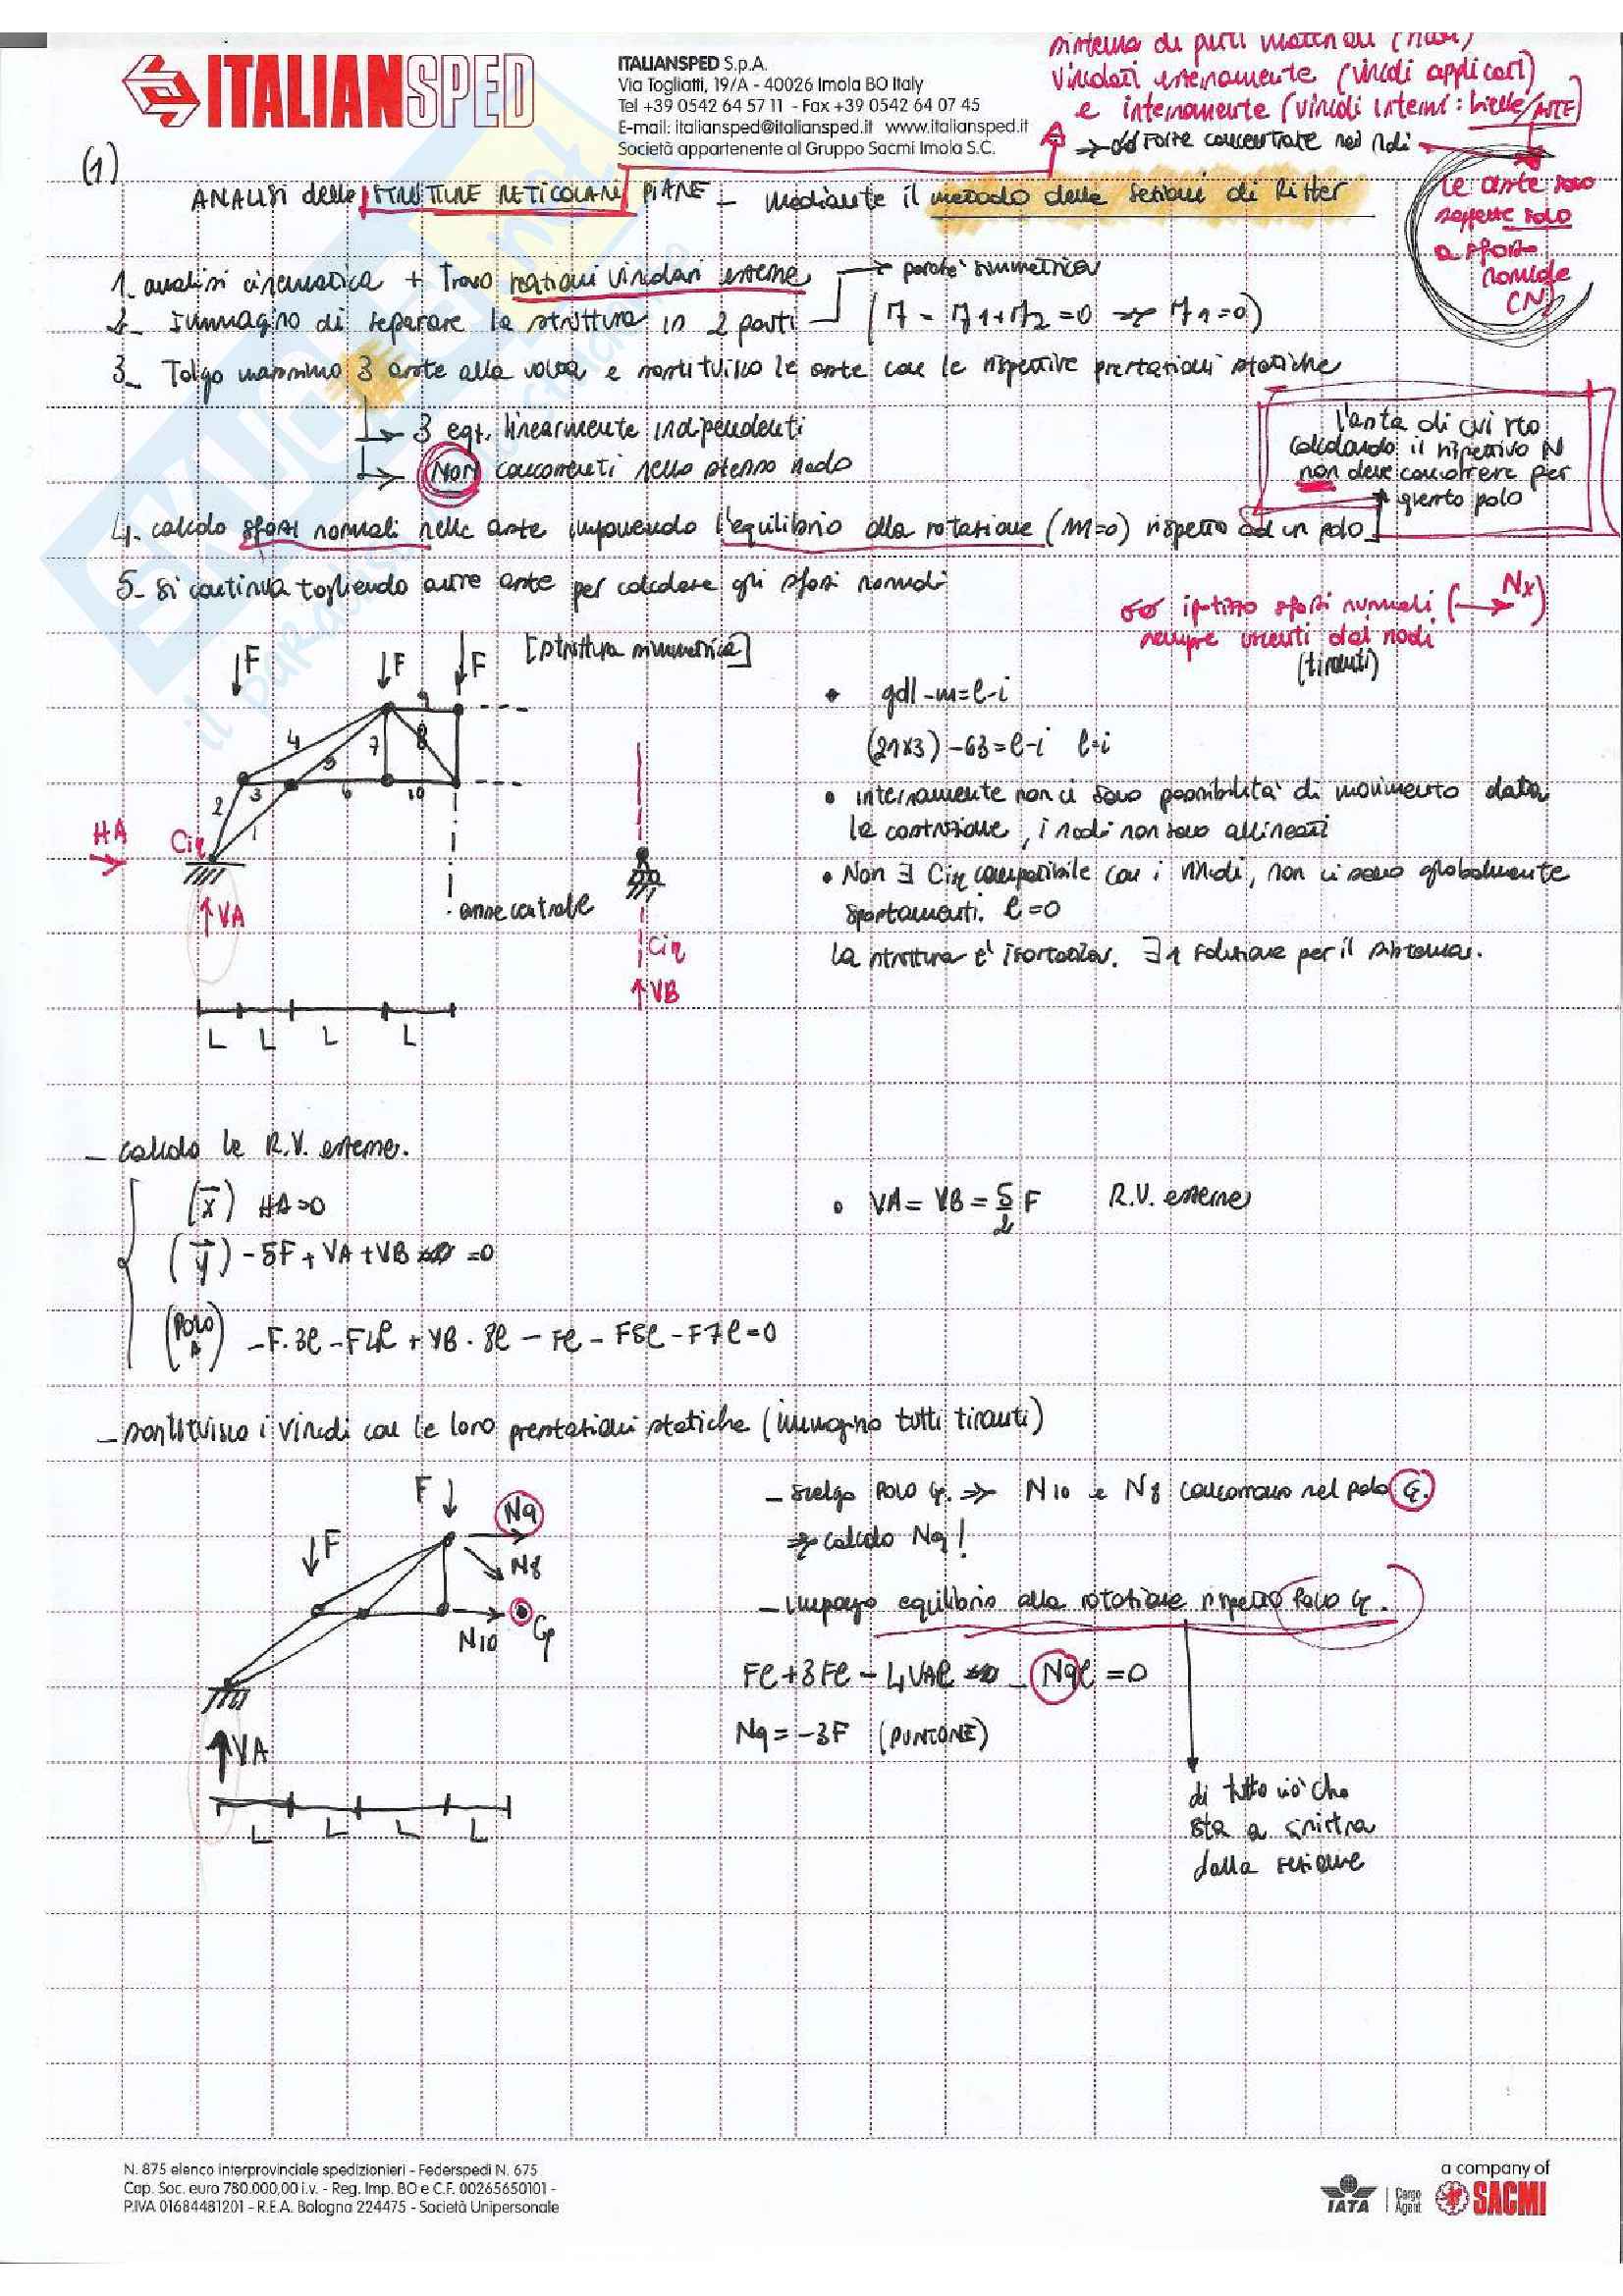 ITALIANSPED
ITALIANSPED S.p.A.
Via Togliatti, 19/A - 40026 Imola BO Italy
Tel +39 0542 64 57 11 - Fax +39 0542 64 07 45
E-mail: italiansped@italiansped.it www.italiansped.it
Società appartenente al Gruppo Sacmi Imola S.C.
sistema di punti materiali (nodi)
vincolati esternamente (vincoli applicati)
e internamente (vincoli interni: bielle/ASTE)
⇒ forze concentrate nei nodi
(1)
ANALISI delle STRUTTURE RETICOLARI PIANE - mediante il metodo delle sezioni di Ritter
le aste sono
soggette solo
a sforzo
normale
(N)
1. analisi cinematica + trovo reazioni vincolari esterne → perché simmetrica
2. Immagino di separare la struttura in 2 parti
3. Tolgo massimo 3 aste alla volta e sostituisco le aste con le rispettive prestazioni statiche
→ 3 eqz. linearmente indipendenti
→ NON concorrenti nello stesso nodo
l'asta di cui sto
calcolando il rispettivo N
non deve concorrere per
questo polo
4. calcolo sforzi normali nelle aste imponendo l'equilibrio alla rotazione (m=0) rispetto ad un polo
5. Si continua togliendo altre aste per calcolare gli sforzi normali
ipotizzo sforzi normali (→ Nx)
sempre uscenti dai nodi
(tiranti)
F
F
F
[struttura simmetrica]
4
9
7
8
5
2
3
6
10
1
HA
Cir
VA
asse centrale
Cir
VB
L L L L
• gdl - m = l - i
(21x3) - 63 = l - i l = i
• internamente non ci sono possibilità di movimento data
la costruzione, i nodi non sono allineati
• Non ∃ Cir compatibile con i vincoli, non ci sono globalmente
spostamenti. l = 0
la struttura è isostatica. ∃ 1 soluzione per il sistema.
- calcolo le R.V. esterne.
(x) HA=0
(y) -5F + VA + VB = 0
(POLO A) -F·3l - F4l + VB·8l - Fl - F5l - F7l = 0
• VA = VB = 5/2 F R.V. esterne
- sostituisco i vincoli con le loro prestazioni statiche (immagino tutti tiranti)
F
N9
F
N8
N10
G
VA
L L L L
- scelgo POLO G. ⇒ N10 e N8 concorrono nel polo G.
⇒ calcolo N9!
- impongo equilibrio alla rotazione rispetto Polo G.
Fl + 3Fl - 4VAl - N9l = 0
N9 = -3F (PUNTONE)
di tutto ciò che
sta a sinistra
della sezione
N. 875 elenco interprovinciale spedizionieri - Federspedi N. 675
Cap. Soc. euro 780.000,00 i.v. - Reg. Imp. BO e C.F. 00265650101 -
P.IVA 01684481201 - R.E.A. Bologna 224475 - Società Unipersonale
IATA
Cargo Agent
a company of
SACMI